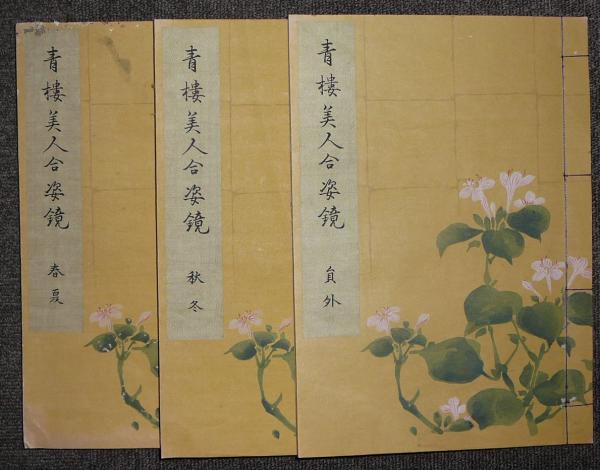 青樓美人合姿鏡
春夏
青樓美人合姿鏡
秋冬
青樓美人合姿鏡
貟外